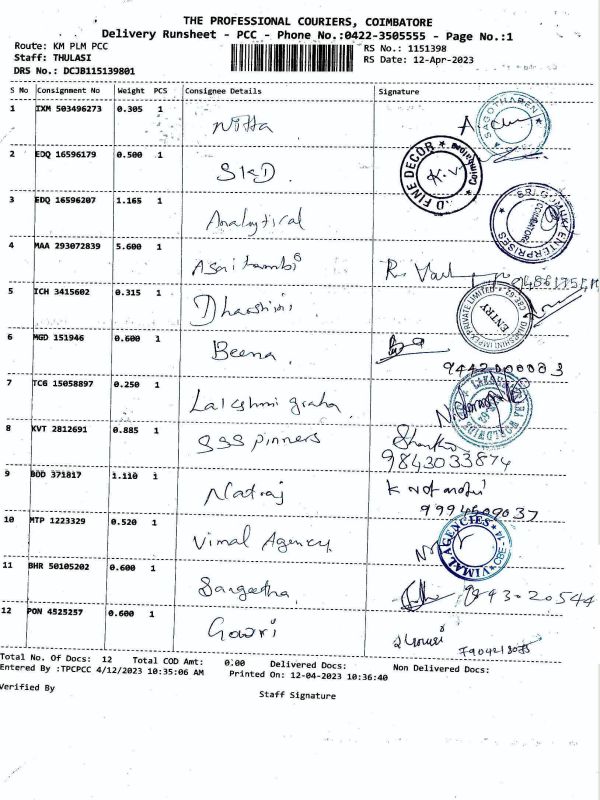 THE PROFESSIONAL COURIERS, COIMBATORE
Delivery Runsheet - PCC - Phone No.:0422-3505555 - Page No.:1
Route: KM PLM PCC
RS No.: 1151398
Staff: THULASI
RS Date: 12-Apr-2023
DRS No.: DCJB115139801
S No Consignment No Weight PCS Consignee Details Signature
1 IXM 503496273 0.305 1 Nitta
SAGOTHAREN
2 EDQ 16596179 0.500 1 SKD
D FINE DECOR * Coimbatore * K.V
3 EDQ 16596207 1.165 1 Analytical
SRI GOMUKI ENTERPRISES * COIMBATORE
4 MAA 293072839 5.600 1 Asaitambi
5 ICH 3415602 0.315 1 Dharshini
DHARSHINI IMPEX PRIVATE LIMITED ENTRY
6 MGD 151946 0.600 1 Beena
7 TCG 15058897 0.250 1 Lakshmi graha
8 KVT 2812691 0.885 1 SSS pinners
9843033874
9 BOD 371817 1.110 1 Natraj
9994509037
10 MTP 1223329 0.520 1 Vimal Agency
VIMAL AGENCIES * CBE - 14 *
11 BHR 50105202 0.600 1 Sangeetha
9843-20544
12 PON 4525257 0.600 1 Gowri
Total No. Of Docs: 12 Total COD Amt: 0.00 Delivered Docs: Non Delivered Docs:
Entered By :TPCPCC 4/12/2023 10:35:06 AM Printed On: 12-04-2023 10:36:40
Verified By
Staff Signature